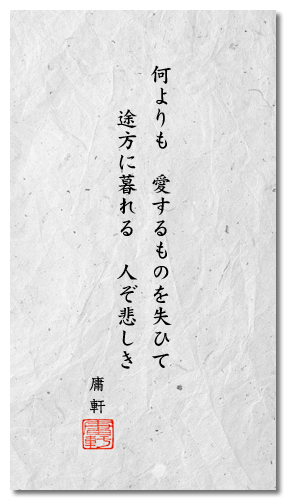 何よりも　愛するものを失ひて
途方に暮れる　人ぞ悲しき
庸軒